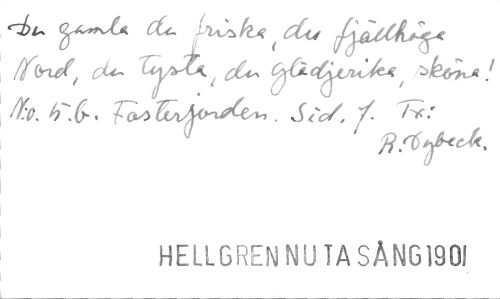 Du gamla du friska, du fjällhöga
Nord, du tysta, du glädjerika, sköna!
N:o. 5.b. Fosterjorden. Sid. 7. Tx:
R. Dybeck.
HELLGREN NUTASÅNG1901